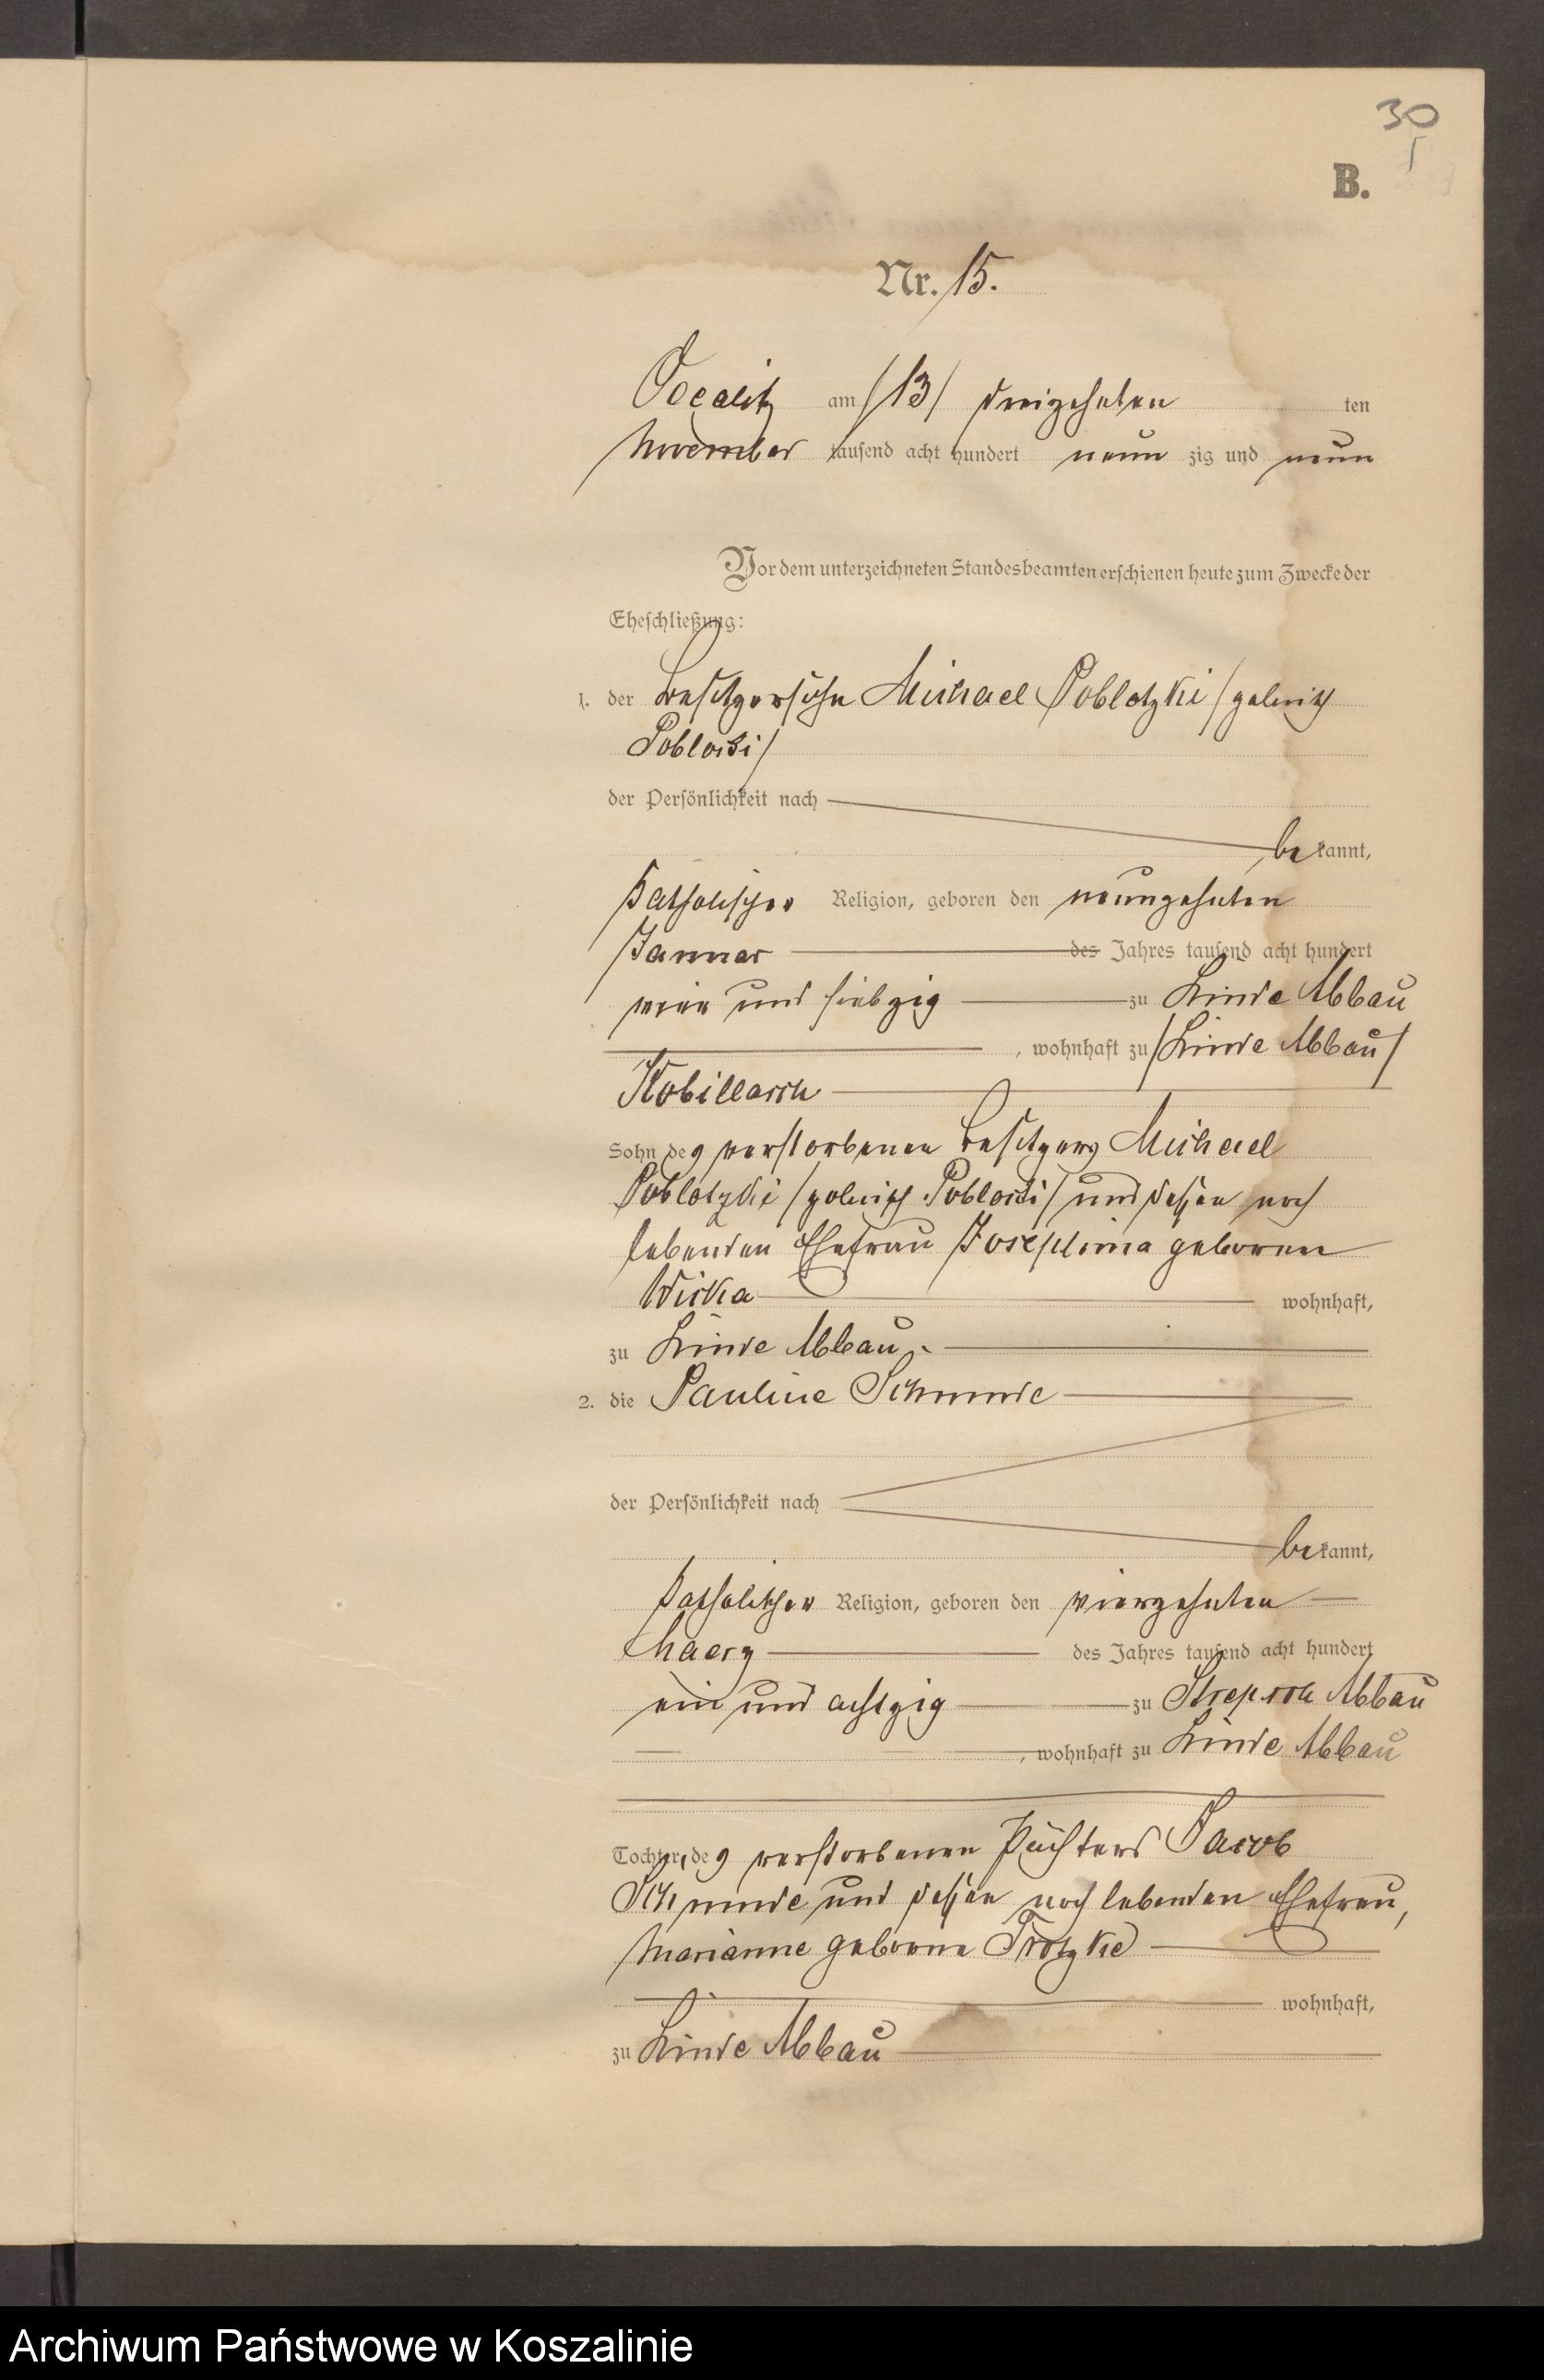 30
B.
Nr. 15.
am /13/ dreizehnten ten
November tausend acht hundert neun zig und neun
Vor dem unterzeichneten Standesbeamten erschienen heute zum Zwecke der
Eheschließung:
1. der Besitzersohn Michael Poblotzki /polnisch
Poblocki/
der Persönlichkeit nach
bekannt,
katholischer Religion, geboren den neunzehnten
Januar des Jahres tausend acht hundert
vier und siebzig zu Linde Abbau
, wohnhaft zu /Linde Abbau/
Kobillasch
Sohn des verstorbenen Besitzers Michael
Poblotzki /polnisch Poblocki/ und dessen noch
lebenden Ehefrau Josephina geboren
Wicka wohnhaft,
zu Linde Abbau.
2. die Pauline Schmude
der Persönlichkeit nach
bekannt,
katholischer Religion, geboren den vierzehnten
Maerz des Jahres tausend acht hundert
ein und achtzig zu Strepsch Abbau
, wohnhaft zu Linde Abbau
Tochter des verstorbenen Pächters Jacob
Schmude und dessen noch lebenden Ehefrau,
Marianne geborne Trotzke
wohnhaft,
zu Linde Abbau
Archiwum Państwowe w Koszalinie